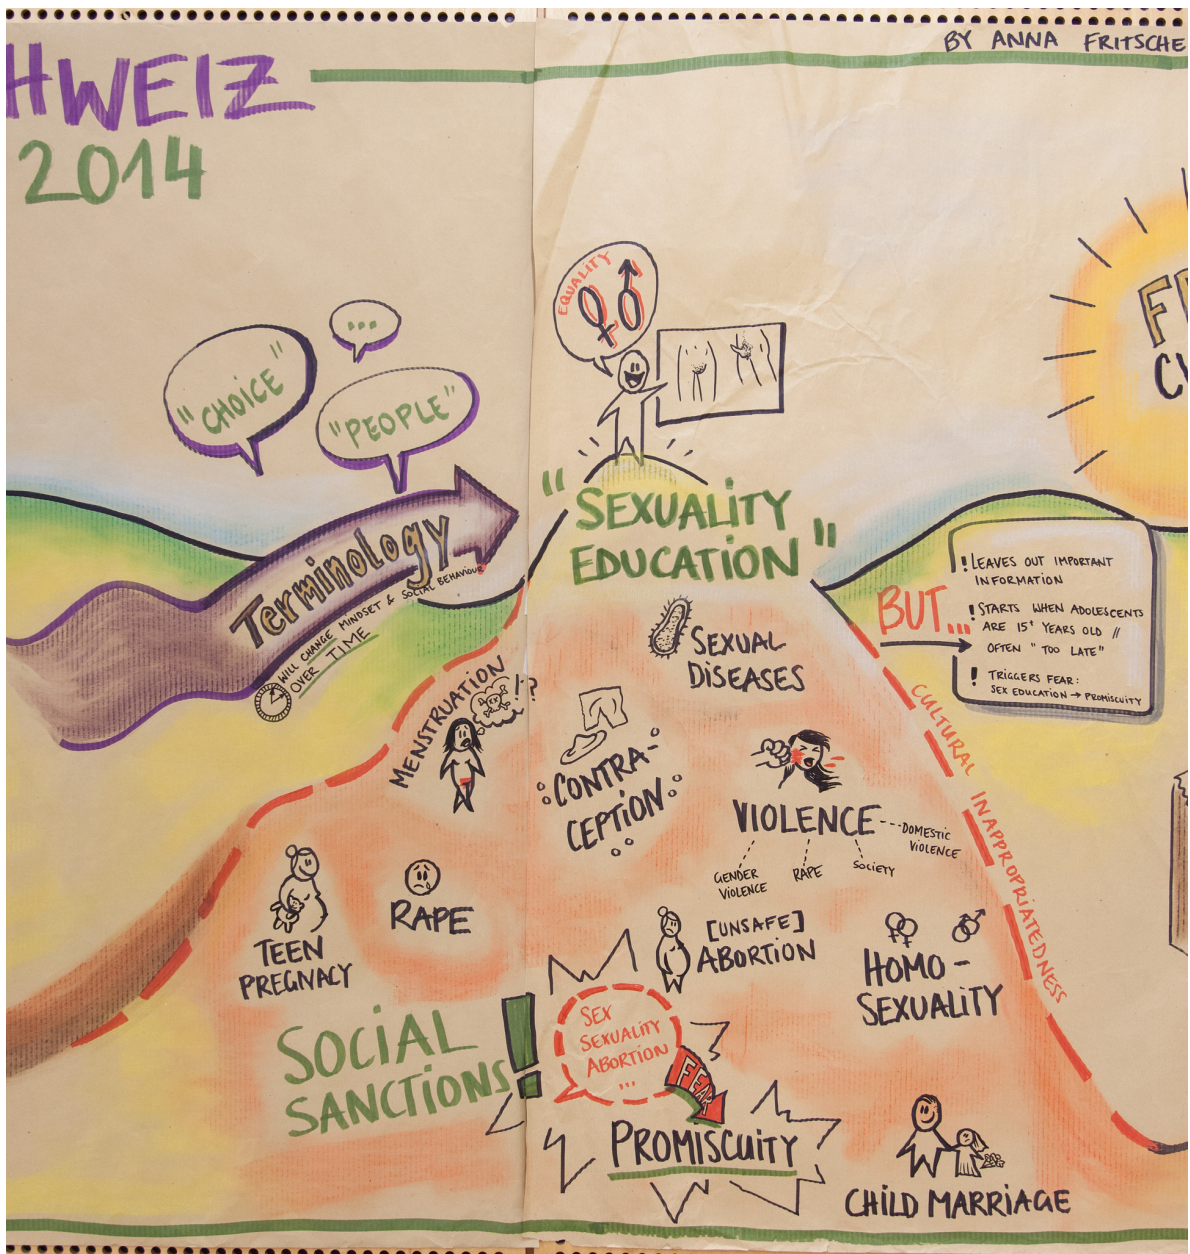 BY ANNA FRITSCHE
HWEIZ
2014
EQUALITY
"CHOICE"
...
"PEOPLE"
Terminology
WILL CHANGE MINDSET & SOCIAL BEHAVIOUR
OVER TIME
"SEXUALITY
EDUCATION"
BUT...
! LEAVES OUT IMPORTANT
INFORMATION
! STARTS WHEN ADOLESCENTS
ARE 15+ YEARS OLD //
OFTEN "TOO LATE"
! TRIGGERS FEAR:
SEX EDUCATION → PROMISCUITY
CULTURAL INAPPROPRIATEDNESS
SEXUAL
DISEASES
MENSTRUATION
!?
CONTRA-
CEPTION
VIOLENCE
DOMESTIC
VIOLENCE
GENDER
VIOLENCE
RAPE
SOCIETY
TEEN
PREGNACY
RAPE
[UNSAFE]
ABORTION
HOMO-
SEXUALITY
SOCIAL
SANCTIONS!
SEX
SEXUALITY
ABORTION
...
FEAR
PROMISCUITY
CHILD MARRIAGE